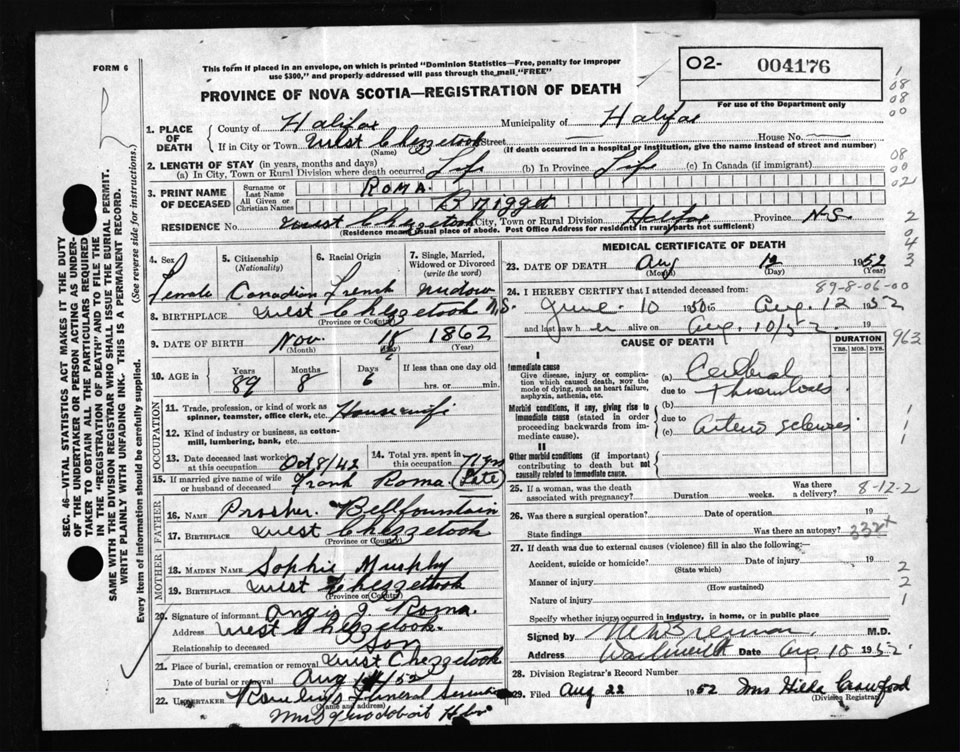 FORM 6
This form if placed in an envelope, on which is printed "Dominion Statistics—Free, penalty for improper
use $300," and properly addressed will pass through the mail "FREE"
O2- 004176
For use of the Department only
PROVINCE OF NOVA SCOTIA—REGISTRATION OF DEATH
1. PLACE OF DEATH
County of Halifax Municipality of Halifax
If in City or Town West Chezzetcook Street House No.
(Name) (If death occurred in a hospital or institution, give the name instead of street and number)
2. LENGTH OF STAY (in years, months and days)
(a) In City, Town or Rural Division where death occurred Life (b) In Province Life (c) In Canada (if immigrant)
3. PRINT NAME OF DECEASED
Surname or Last Name ROMA.
All Given or Christian Names Bridget
RESIDENCE No. West Chezzetcook City, Town or Rural Division Halifax Province N.S.
(Residence means usual place of abode. Post Office Address for residents in rural parts not sufficient)
4. Sex Female
5. Citizenship (Nationality) Canadian
6. Racial Origin French
7. Single, Married, Widowed or Divorced (write the word) Widow
8. BIRTHPLACE West Chezzetcook N.S.
(Province or Country)
9. DATE OF BIRTH Nov. 1862
(Month) (Day) (Year)
10. AGE in Years 89 Months 8 Days 6 If less than one day old
hrs. or min.
OCCUPATION
11. Trade, profession, or kind of work as spinner, teamster, office clerk, etc. Housewife
12. Kind of industry or business, as cotton-mill, lumbering, bank, etc.
13. Date deceased last worked at this occupation Oct 8/42
14. Total yrs. spent in this occupation 71 yrs
15. If married give name of wife or husband of deceased Frank Roma. (Late)
FATHER
16. NAME Prosher. Bellfountain
17. BIRTHPLACE West Chezzetcook
(Province or Country)
MOTHER
18. MAIDEN NAME Sophie Murphy
19. BIRTHPLACE West Chezzetcook
(Province or Country)
20. Signature of informant Roma.
Address West Chezzetcook.
Relationship to deceased Son
21. Place of burial, cremation or removal West Chezzetcook
Date of burial or removal Aug 14/52
22. UNDERTAKER Funeral Service
(Name and address)
MEDICAL CERTIFICATE OF DEATH
23. DATE OF DEATH Aug 12 1952
(Month) (Day) (Year)
24. I HEREBY CERTIFY that I attended deceased from: 89-8-06-00
June 10 1950 to Aug. 12 1952
and last saw her alive on Aug. 10/52 19
CAUSE OF DEATH
DURATION
YRS. MOS. DYS.
I
Immediate cause
Give disease, injury or complication which caused death, not the mode of dying, such as heart failure, asphyxia, asthenia, etc.
(a) Cerebral
due to Thrombosis
Morbid conditions, if any, giving rise to immediate cause (stated in order proceeding backwards from immediate cause).
(b)
due to
(c) Arterio sclerosis
II
Other morbid conditions (if important) contributing to death but not causally related to immediate cause.
25. If a woman, was the death associated with pregnancy? Duration weeks. Was there a delivery? 8-12-2
26. Was there a surgical operation? Date of operation 19
State findings Was there an autopsy? 332x
27. If death was due to external causes (violence) fill in also the following:—
Accident, suicide or homicide? Date of injury 19
(State which)
Manner of injury
(How sustained)
Nature of injury
Specify whether injury occurred in industry, in home, or in public place
Signed by M.D.
Address Date Aug 15 1952
28. Division Registrar's Record Number
29. Filed Aug 22 1952 Mrs Hilda Crawford
(Division Registrar)
SEC. 46—VITAL STATISTICS ACT MAKES IT THE DUTY
OF THE UNDERTAKER OR PERSON ACTING AS UNDER-
TAKER TO OBTAIN ALL THE PARTICULARS REQUIRED
IN THE "REGISTRATION OF DEATH" AND TO FILE THE
SAME WITH THE DIVISION REGISTRAR WHO SHALL ISSUE THE BURIAL PERMIT.
WRITE PLAINLY WITH UNFADING INK. THIS IS A PERMANENT RECORD.
Every item of information should be carefully supplied. (See reverse side for instructions.)
1
08
08
00
08
00
02
2
0
4
3
963
1
1
2
2
1